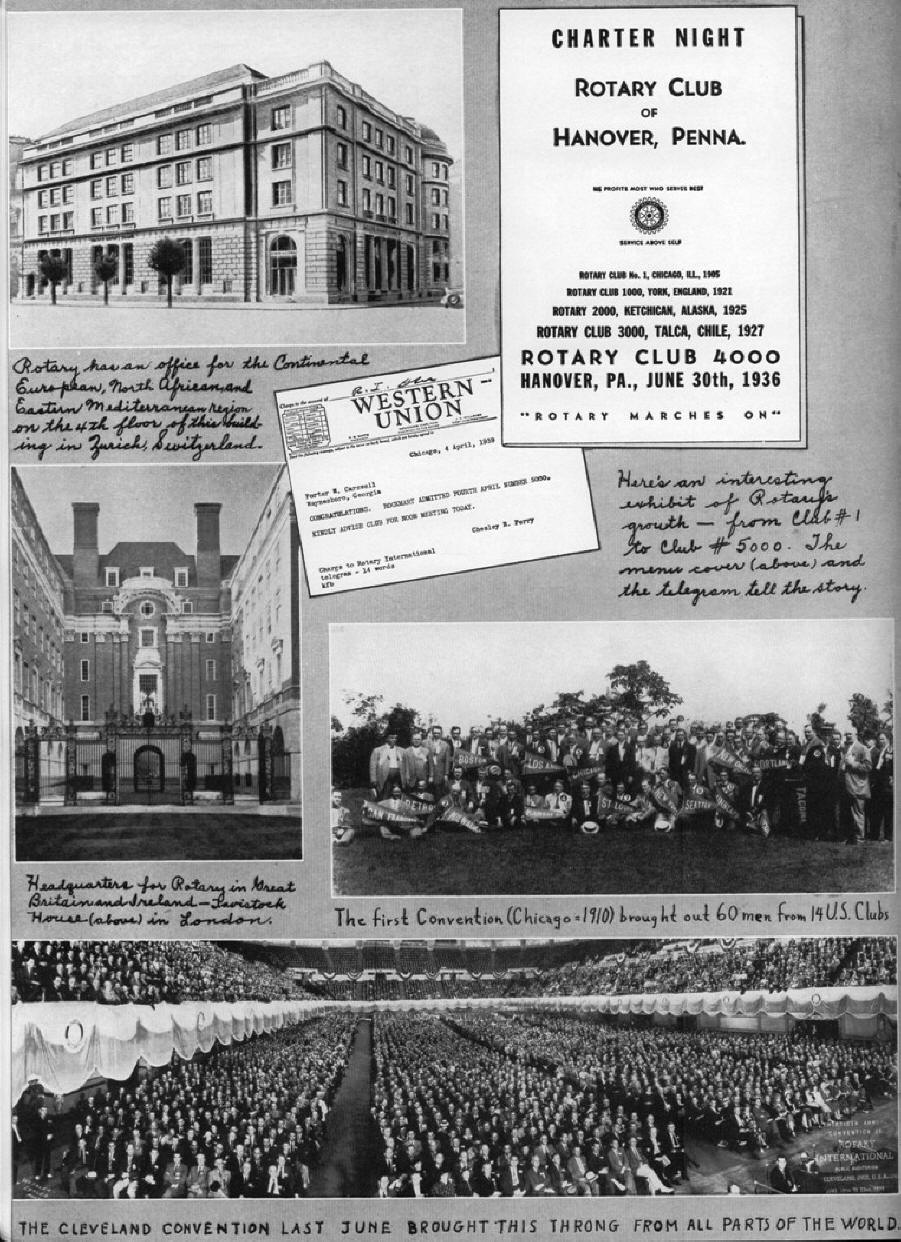 CHARTER NIGHT
ROTARY CLUB
OF
HANOVER, PENNA.
HE PROFITS MOST WHO SERVES BEST
SERVICE ABOVE SELF
ROTARY CLUB No. 1, CHICAGO, ILL., 1905
ROTARY CLUB 1000, YORK, ENGLAND, 1921
ROTARY 2000, KETCHICAN, ALASKA, 1925
ROTARY CLUB 3000, TALCA, CHILE, 1927
ROTARY CLUB 4000
HANOVER, PA., JUNE 30th, 1936
"ROTARY MARCHES ON"
Rotary has an office for the Continental
European, North African, and
Eastern Mediterranean region
on the 4th floor of this build-
ing in Zurich, Switzerland.
WESTERN
UNION
Chicago, 4 April, 1939
Porter W. Carswell
Waynesboro, Georgia
CONGRATULATIONS. ROCKMART ADMITTED FOURTH APRIL NUMBER 5000.
KINDLY ADVISE CLUB FOR NOON MEETING TODAY.
Chesley R. Perry
Charge to Rotary International
telegram - 14 words
Here's an interesting
exhibit of Rotary's
growth — from Club #1
to Club # 5000. The
menu cover (above) and
the telegram tell the story.
BOSTON
LOS
CHICAGO
PORTLAND
DETRO
SAN FRANCIS
ST LOU
SEATTLE
TACOM
Headquarters for Rotary in Great
Britain and Ireland — Tavistock
House (above) in London.
The first Convention (Chicago = 1910) brought out 60 men from 14 U.S. Clubs
CONVENTION OF
ROTARY
INTERNATIONAL
PUBLIC AUDITORIUM
CLEVELAND, OHIO, U.S.A.
THE CLEVELAND CONVENTION LAST JUNE BROUGHT THIS THRONG FROM ALL PARTS OF THE WORLD.